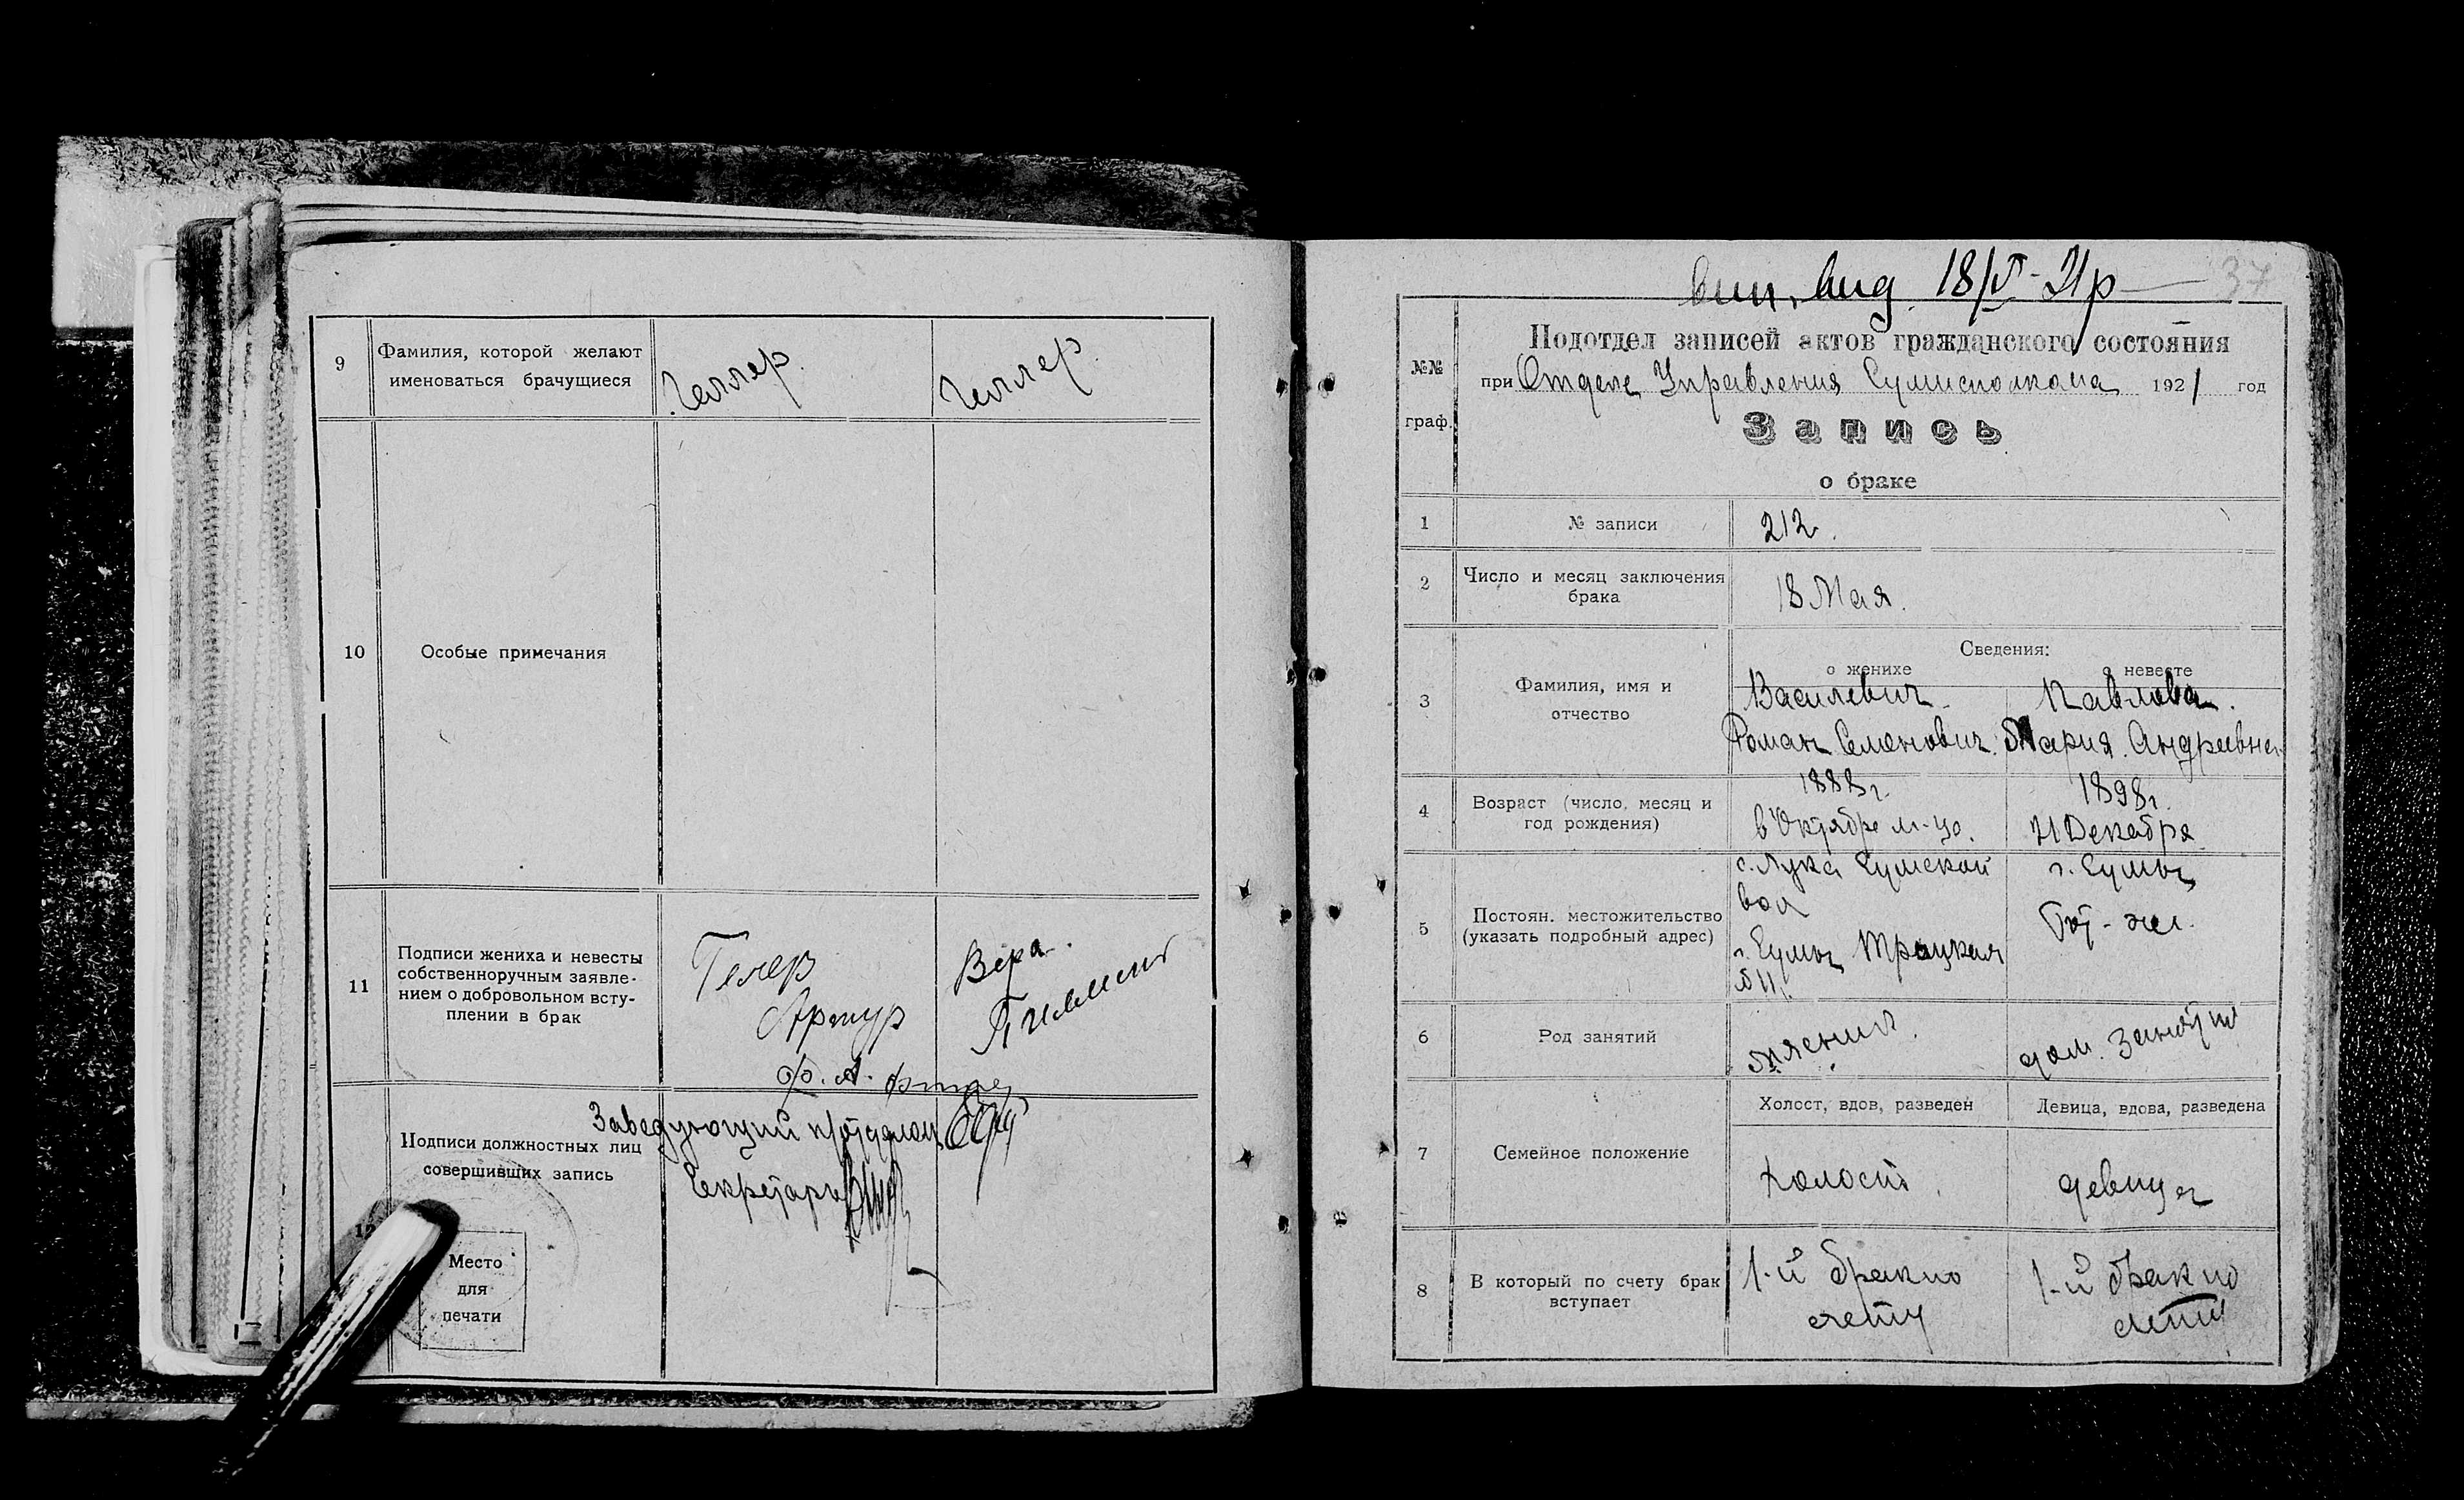 9
Фамилия, которой желают
именоваться брачущиеся
Геллер.
Геллер.
10
Особые примечания
11
Подписи жениха и невесты
собственноручным заявле-
нием о добровольном всту-
плении в брак
Гелер
Артур
Вера
12
Подписи должностных лиц
совершивших запись
Заведующий п/отделом
Секретарь
Место
для
печати
18/V-21р
37
№№
граф.
Подотдел записей актов гражданского состояния
при Отделе Управления Сумисполкома 1921 год
Запись
о браке
1
№ записи
212.
2
Число и месяц заключения
брака
18 Мая.
3
Фамилия, имя и
отчество
Сведения:
о женихе
о невесте
Василевич
Роман Семенович.
Павлова.
Мария Андреевна
4
Возраст (число, месяц и
год рождения)
1888г.
в Октябре м-це.
1898г.
21 Декабря
5
Постоян. местожительство
(указать подробный адрес)
с. Лука Сумской
вол
г. Сумы Троцкая
г. Сумы
6
Род занятий
дом.
7
Семейное положение
Холост, вдов, разведен
Девица, вдова, разведена
Холост.
девица
8
В который по счету брак
вступает
1-й брак по
счету
1-й брак по
счету